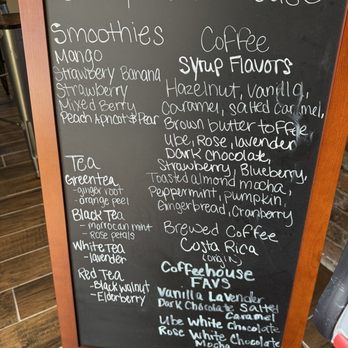 Smoothies
Mango
Strawbery Banana
Strawberry
Mixed Berry
Peach Apricot & Pear
Tea
Green tea
- ginger root
- orange peel
Black Tea
- morrocan mint
- Rose petals
White TEA
- lavender
Red Tea
- Black walnut
- Elderberry
Coffee
Syrup Flavors
Hazelnut, Vanilla,
Caramel, Salted Caramel,
Brown butter toffee
Ube, Rose, lavender
Dark chocolate,
Strawberry, Blueberry,
Toasted almond mocha,
Peppermint, pumpkin,
Gingerbread, Cranberry
Brewed Coffee
Costa Rica
(origin)
Coffeehouse
FAVS
Vanilla Lavender
Dark Chocolate Salted
Caramel
Ube White Chocolate
Rose White Chocolate
Mocha